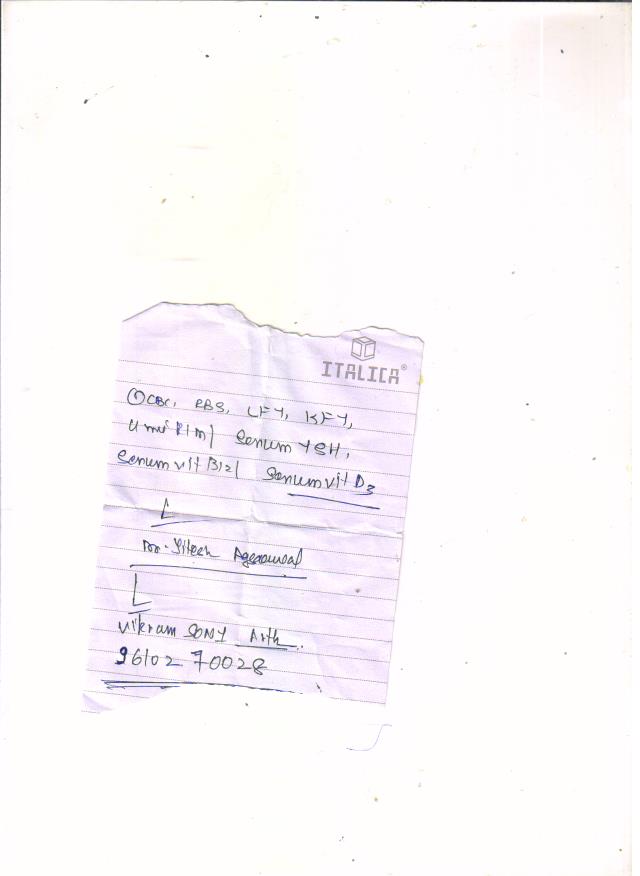 ITALICA®
① CBC, RBS, LFT, KFT,
Urine R/m/ Serum TSH,
Serum vit B12/ Serum vit D3
Dr. Jitesh Aggarwal
Vikram SONY Arth
96102 70028